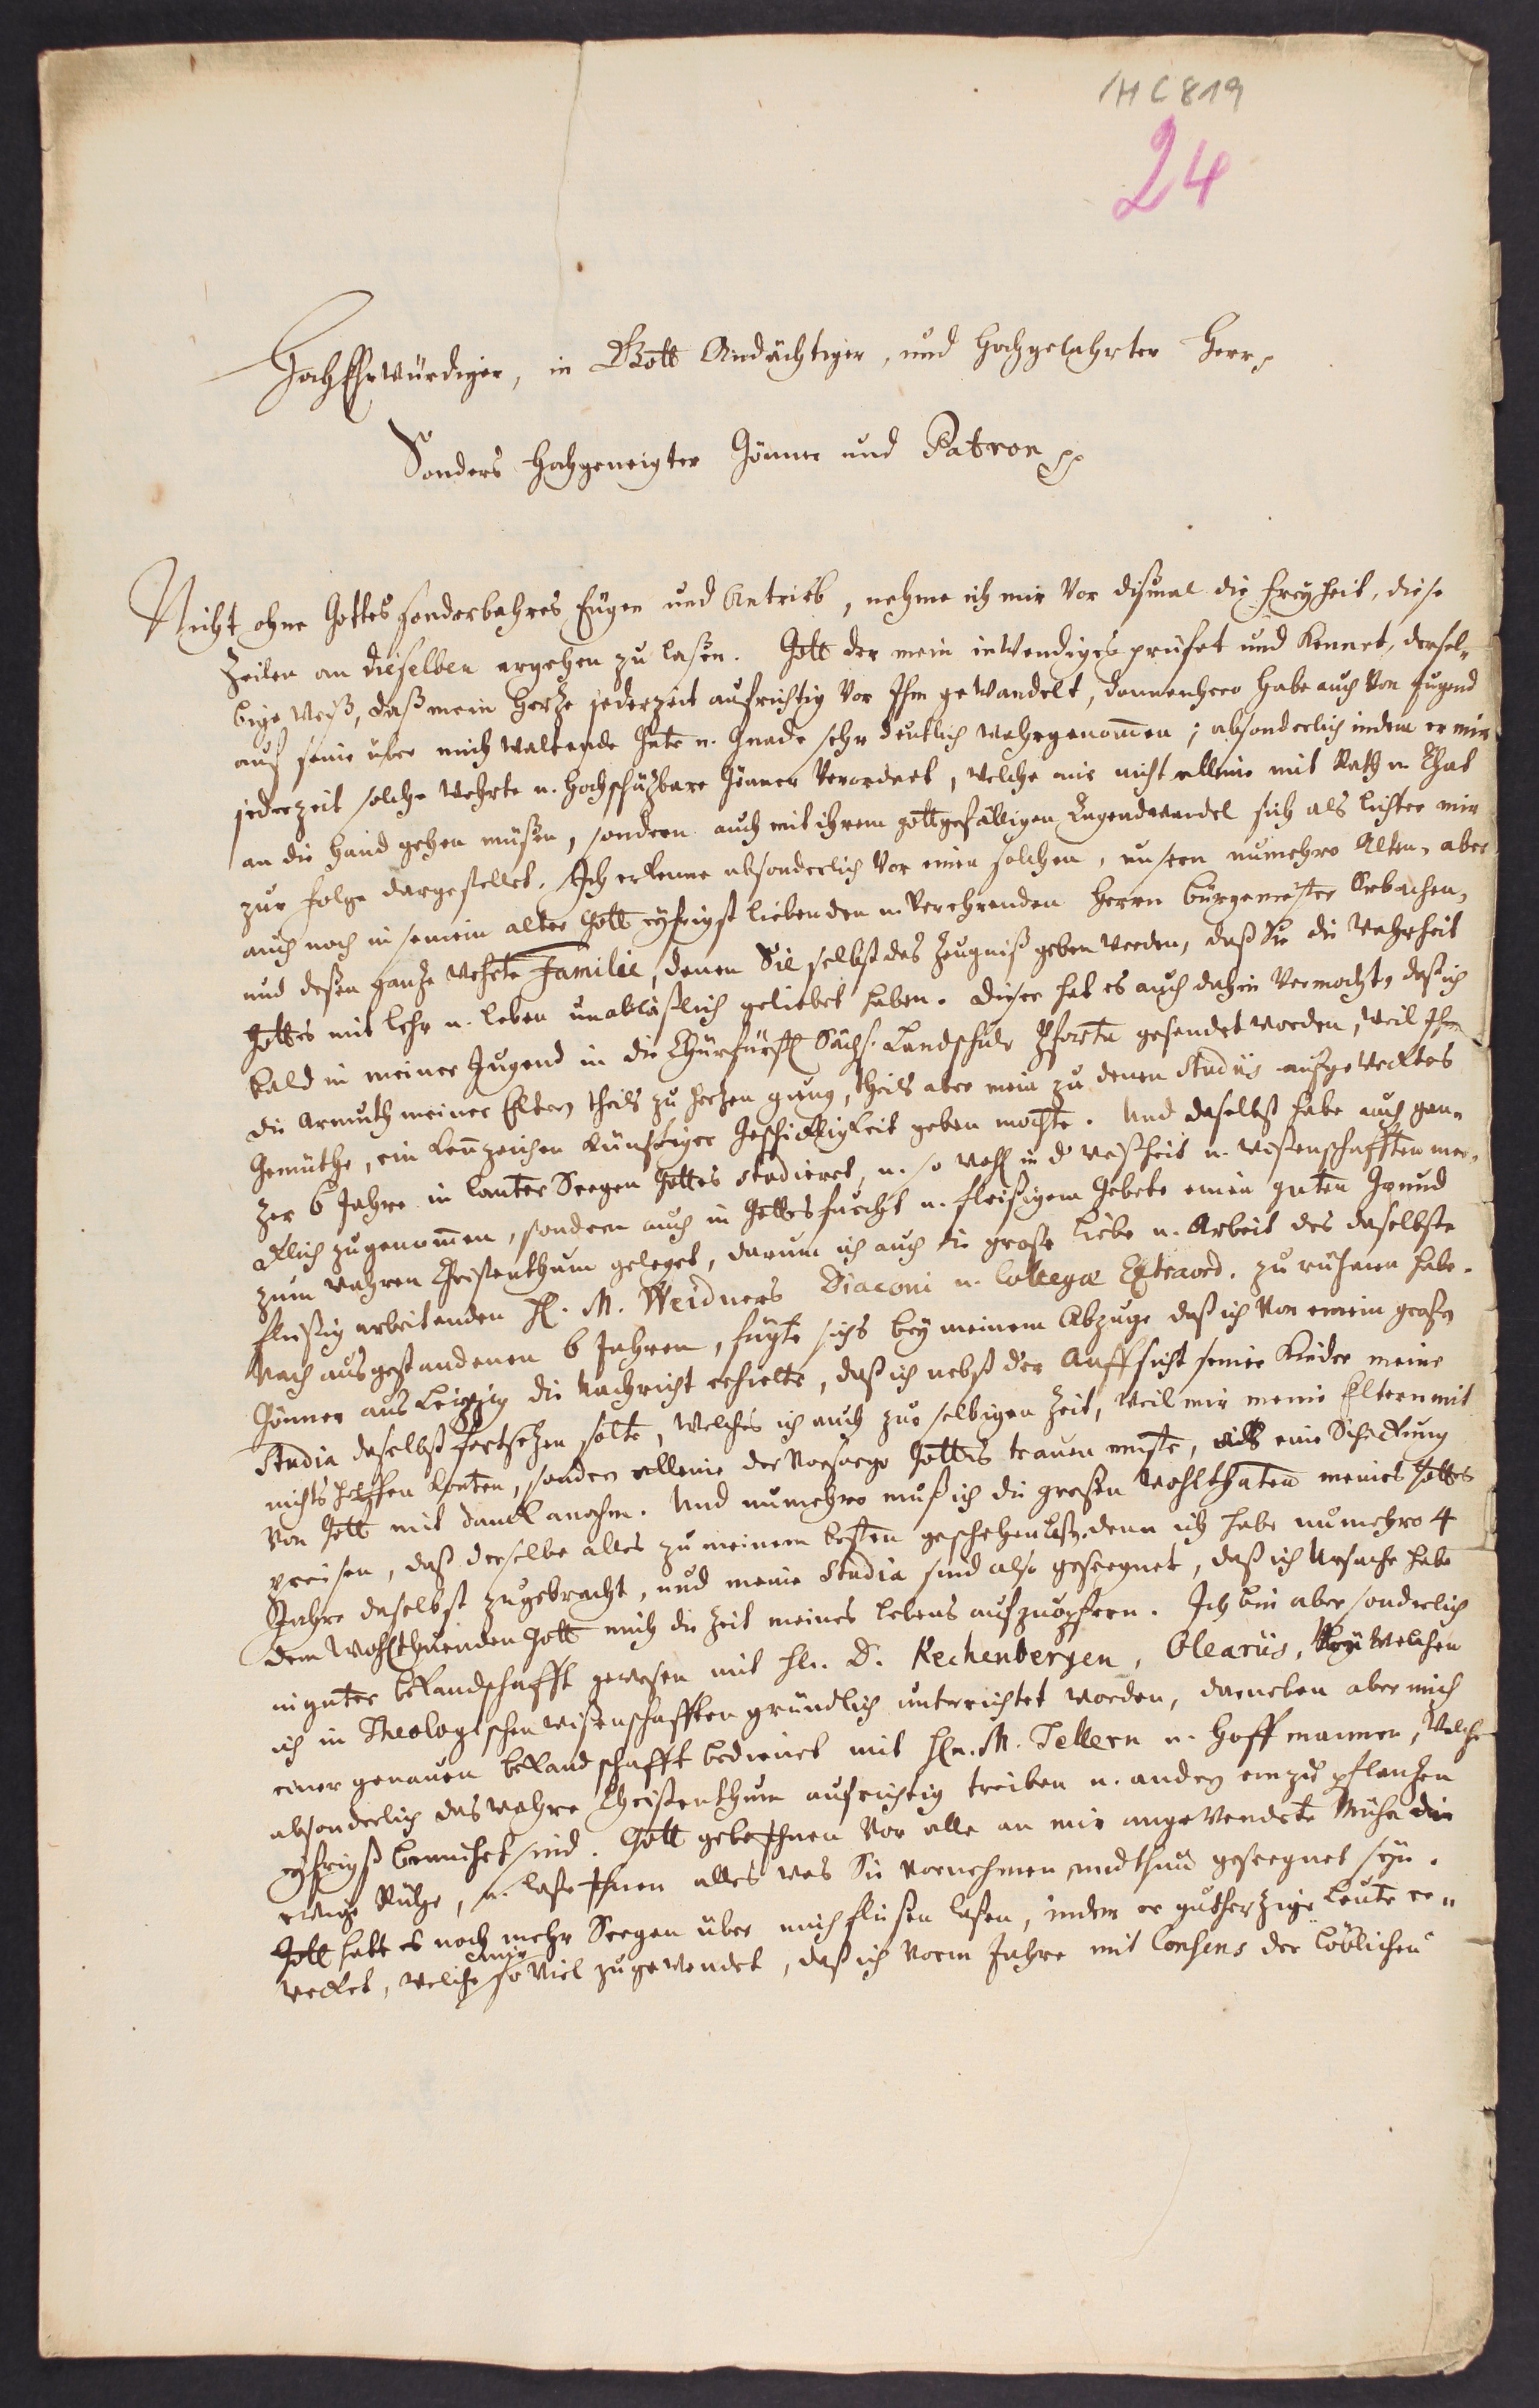 /H C 819
24
HochEhrwürdiger, in Gott Andächtiger, und Hochgelahrter Herr,
Sonders Hochgeneigter Gönner und Patron p
Nicht ohne Gottes sonderbahres Fügen und Antrieb, nehme ich mir vor dißmal die Freyheit, diese
Zeilen an dieselben ergehen zu laßen. Gott der mein inwendiges prüfet und kennet, dersel-
bige weiß, daß mein Hertze jederzeit aufrichtig vor Ihm gewandelt, dannenhero habe auch von Jugend
auf seine über mich waltende Güte u. Gnade sehr deutlich wahrgenom̅en; absonderlich indem er mir
jederzeit solche wehrte u. hochschäzbare Gönner verordnet, welche mir nicht alleine mit Rath u. That
an die Hand gehen müßen, sondern auch mit ihrem gottgefälligen Tugendwandel sich als Lichter mir
zur Folge dargestellet. Ich erkenne absonderlich vor einen solchen, unsern numehro Alten, aber
auch noch in seinem alter Gott eyfrigst liebenden u. verehrenden Herrn Bürgemeister Sebachen,
und deßen gantze wehrte Familie, denen Sie selbst das Zeugniß geben werden, daß Sie die Wahrheit
Gottes mit Lehr u. Leben unabläßlich geliebet haben. Dieser hat es auch dahin vermocht, daß ich
bald in meiner Jugend in die Churfürstl Sächs. Landschule Pforta gesendet worden, weil Ihm
die Armuth meiner Eltern theils zu Hertzen gieng, theils aber mein zu denen Studiis aufgewecktes
Gemüthe, ein Ken̅zeichen künfftiger Geschickligkeit geben mochte. Und daselbst habe auch gan-
zer 6 Jahre in lauter Seegen Gottes studieret, u. so wohl in d Weißheit u. Wißenschafften mer-
cklich zugenom̅en, sondern auch in Gottesfurcht u. fleißigem Gebete einen guten Grund
zum wahren Christenthum geleget, darum ich auch die große Liebe u. Arbeit des daselbste
fleißig arbeitenden H. M. Weidners Diaconi u. Collegæ Extraord. zu rühmen habe.
Nach ausgestandenen 6 Jahren, fügte sichs bey meinem Abzuge daß ich von einem großen
Gönner aus Leipzig die Nachricht erhielte, daß ich nebst der Auffsicht seiner Kinder meine
Studia daselbst fortsetzen solte, welches ich auch zur selbigen Zeit, weil mir meine Eltern mit
nichts helffen konten, sondern alleine der Vorsorge Gottes trauen muste, als eine Schickung
von Gott mit Danck anahm. Und numehro muß ich die großen Wohlthaten meines Gottes
preisen, daß derselbe alles zu meinem besten geschehen laße. denn ich habe numehro 4
Jahre daselbst zugebracht, und meine Studia sind also geseegnet, daß ich Ursache habe
dem wohlthuenden Gott mich die Zeit meines Lebens aufzuopfern. Ich bin aber sonderlich
in guter Bekandschafft gewesen mit Hn. D. Rechenbergen, Olearius, bey welchen
ich in Theologischen Wißenschafften gründlich unterrichtet worden, darneben aber mich
einer genauen Bekandschafft bedienet mit Hn. M. Tellern u. Hoffmannen, welche
absonderlich das wahre Christenthum aufrichtig treiben u. andern einzupflantzen
eyfrigst bemühet sind. Gott gebe Ihnen vor alle an mir angewendete Mühe die
ewige Ruhe, u. laße Ihnen alles was Sie vornehmen und thun geseegnet seyn.
Gott hatt es noch mehr Seegen über mich fließen laßen, indem er gutherzige Leute er-
wecket, welche mir so viel zugewendet, daß ich vorm Jahre mit Consens der Löblichen